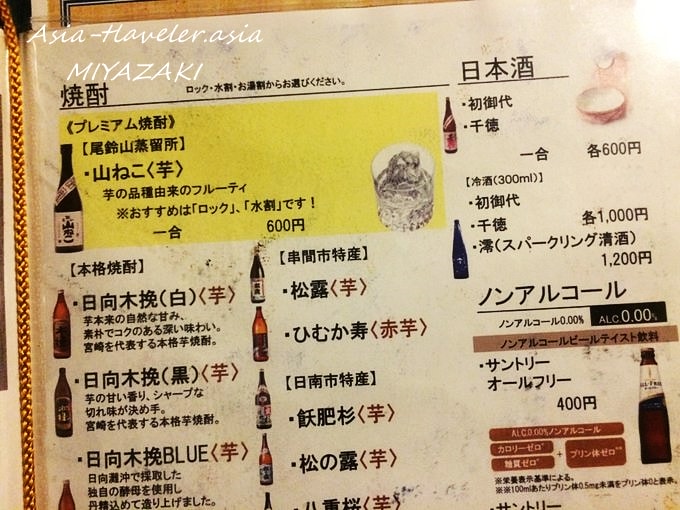 Asia-Haveler.asia
MIYAZAKI
焼酎
ロック・水割・お湯割からお選びください。
《プレミアム焼酎》
【尾鈴山蒸留所】
・山ねこ〈芋〉
芋の品種由来のフルーティ
※おすすめは「ロック」、「水割」です！
一合 600円
【本格焼酎】
・日向木挽(白)〈芋〉
芋本来の自然な甘み、
素朴でコクのある深い味わい。
宮崎を代表する本格芋焼酎。
・日向木挽(黒)〈芋〉
芋の甘い香り、シャープな
切れ味が決め手。
宮崎を代表する本格芋焼酎。
・日向木挽BLUE〈芋〉
日向灘沖で採取した
独自の酵母を使用し
丹精込めて造り上げました。
【串間市特産】
・松露〈芋〉
・ひむか寿〈赤芋〉
【日南市特産】
・飫肥杉〈芋〉
・松の露〈芋〉
・八重桜〈芋〉
日本酒
・初御代
・千徳
一合 各600円
【冷酒(300ml)】
・初御代
・千徳 各1,000円
・澪(スパークリング清酒)
1,200円
ノンアルコール
ノンアルコール0.00% ALC.0.00%
ノンアルコールビールテイスト飲料
・サントリー
オールフリー
400円
ALC.0.00%ノンアルコール
カロリーゼロ※
糖質ゼロ※
+ プリン体ゼロ※※
※栄養表示基準による。
※※100mlあたりプリン体0.5mg未満をプリン体0と表示。
・サントリー